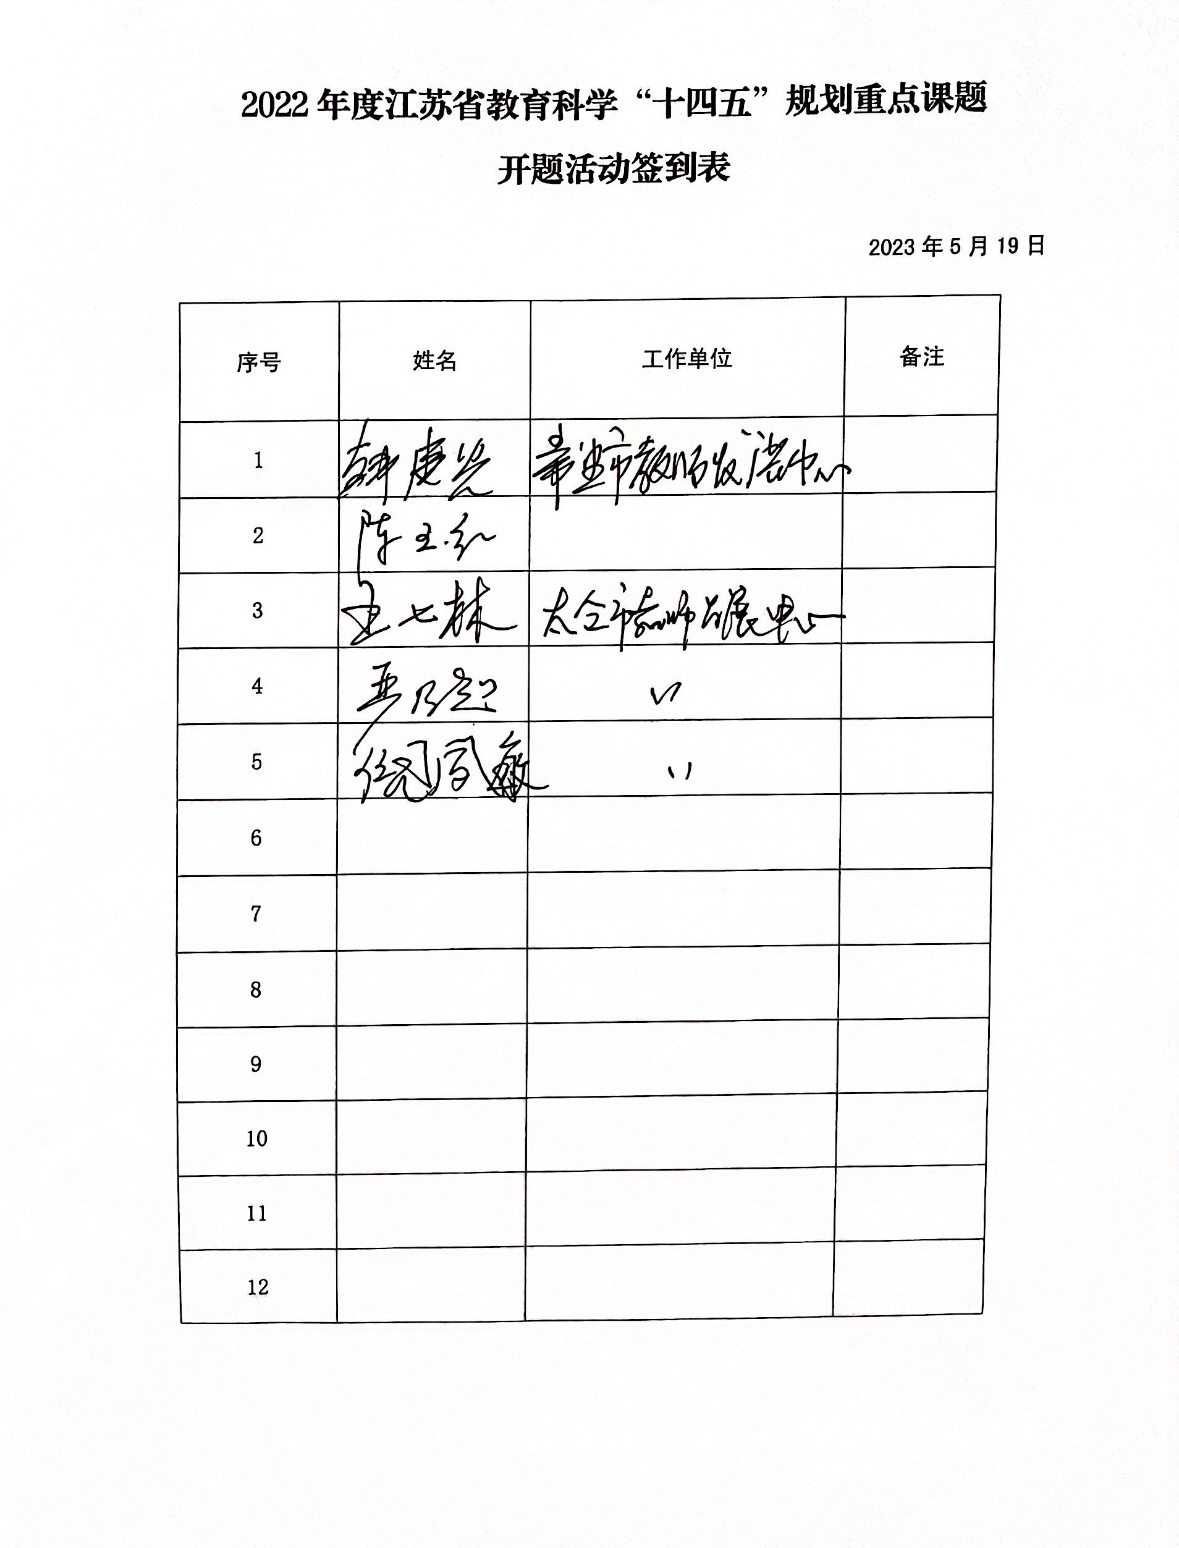 2022 年度江苏省教育科学“十四五”规划重点课题
开题活动签到表
2023 年 5 月 19 日
序号 姓名 工作单位 备注
1 市教师发展中心
2 陈玉红
3 王七林 太仓市教师发展中心
4 〃
5 倪同敏 〃
6
7
8
9
10
11
12